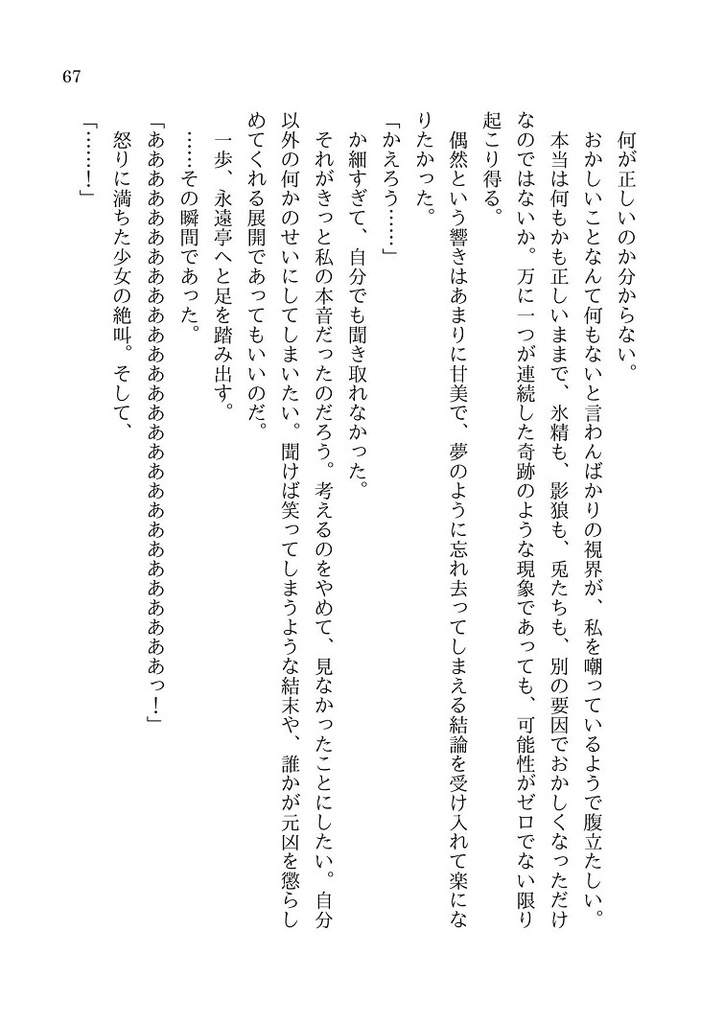 67
何が正しいのか分からない。
おかしいことなんて何もないと言わんばかりの視界が、私を嘲っているようで腹立たしい。
本当は何もかも正しいままで、氷精も、影狼も、兎たちも、別の要因でおかしくなっただけ
なのではないか。万に一つが連続した奇跡のような現象であっても、可能性がゼロでない限り
起こり得る。
偶然という響きはあまりに甘美で、夢のように忘れ去ってしまえる結論を受け入れて楽にな
りたかった。
「かえろう……」
か細すぎて、自分でも聞き取れなかった。
それがきっと私の本音だったのだろう。考えるのをやめて、見なかったことにしたい。自分
以外の何かのせいにしてしまいたい。聞けば笑ってしまうような結末や、誰かが元凶を懲らし
めてくれる展開であってもいいのだ。
一歩、永遠亭へと足を踏み出す。
……その瞬間であった。
「あああああああああああああああああああああああああああああっ！」
怒りに満ちた少女の絶叫。そして、
「……！」